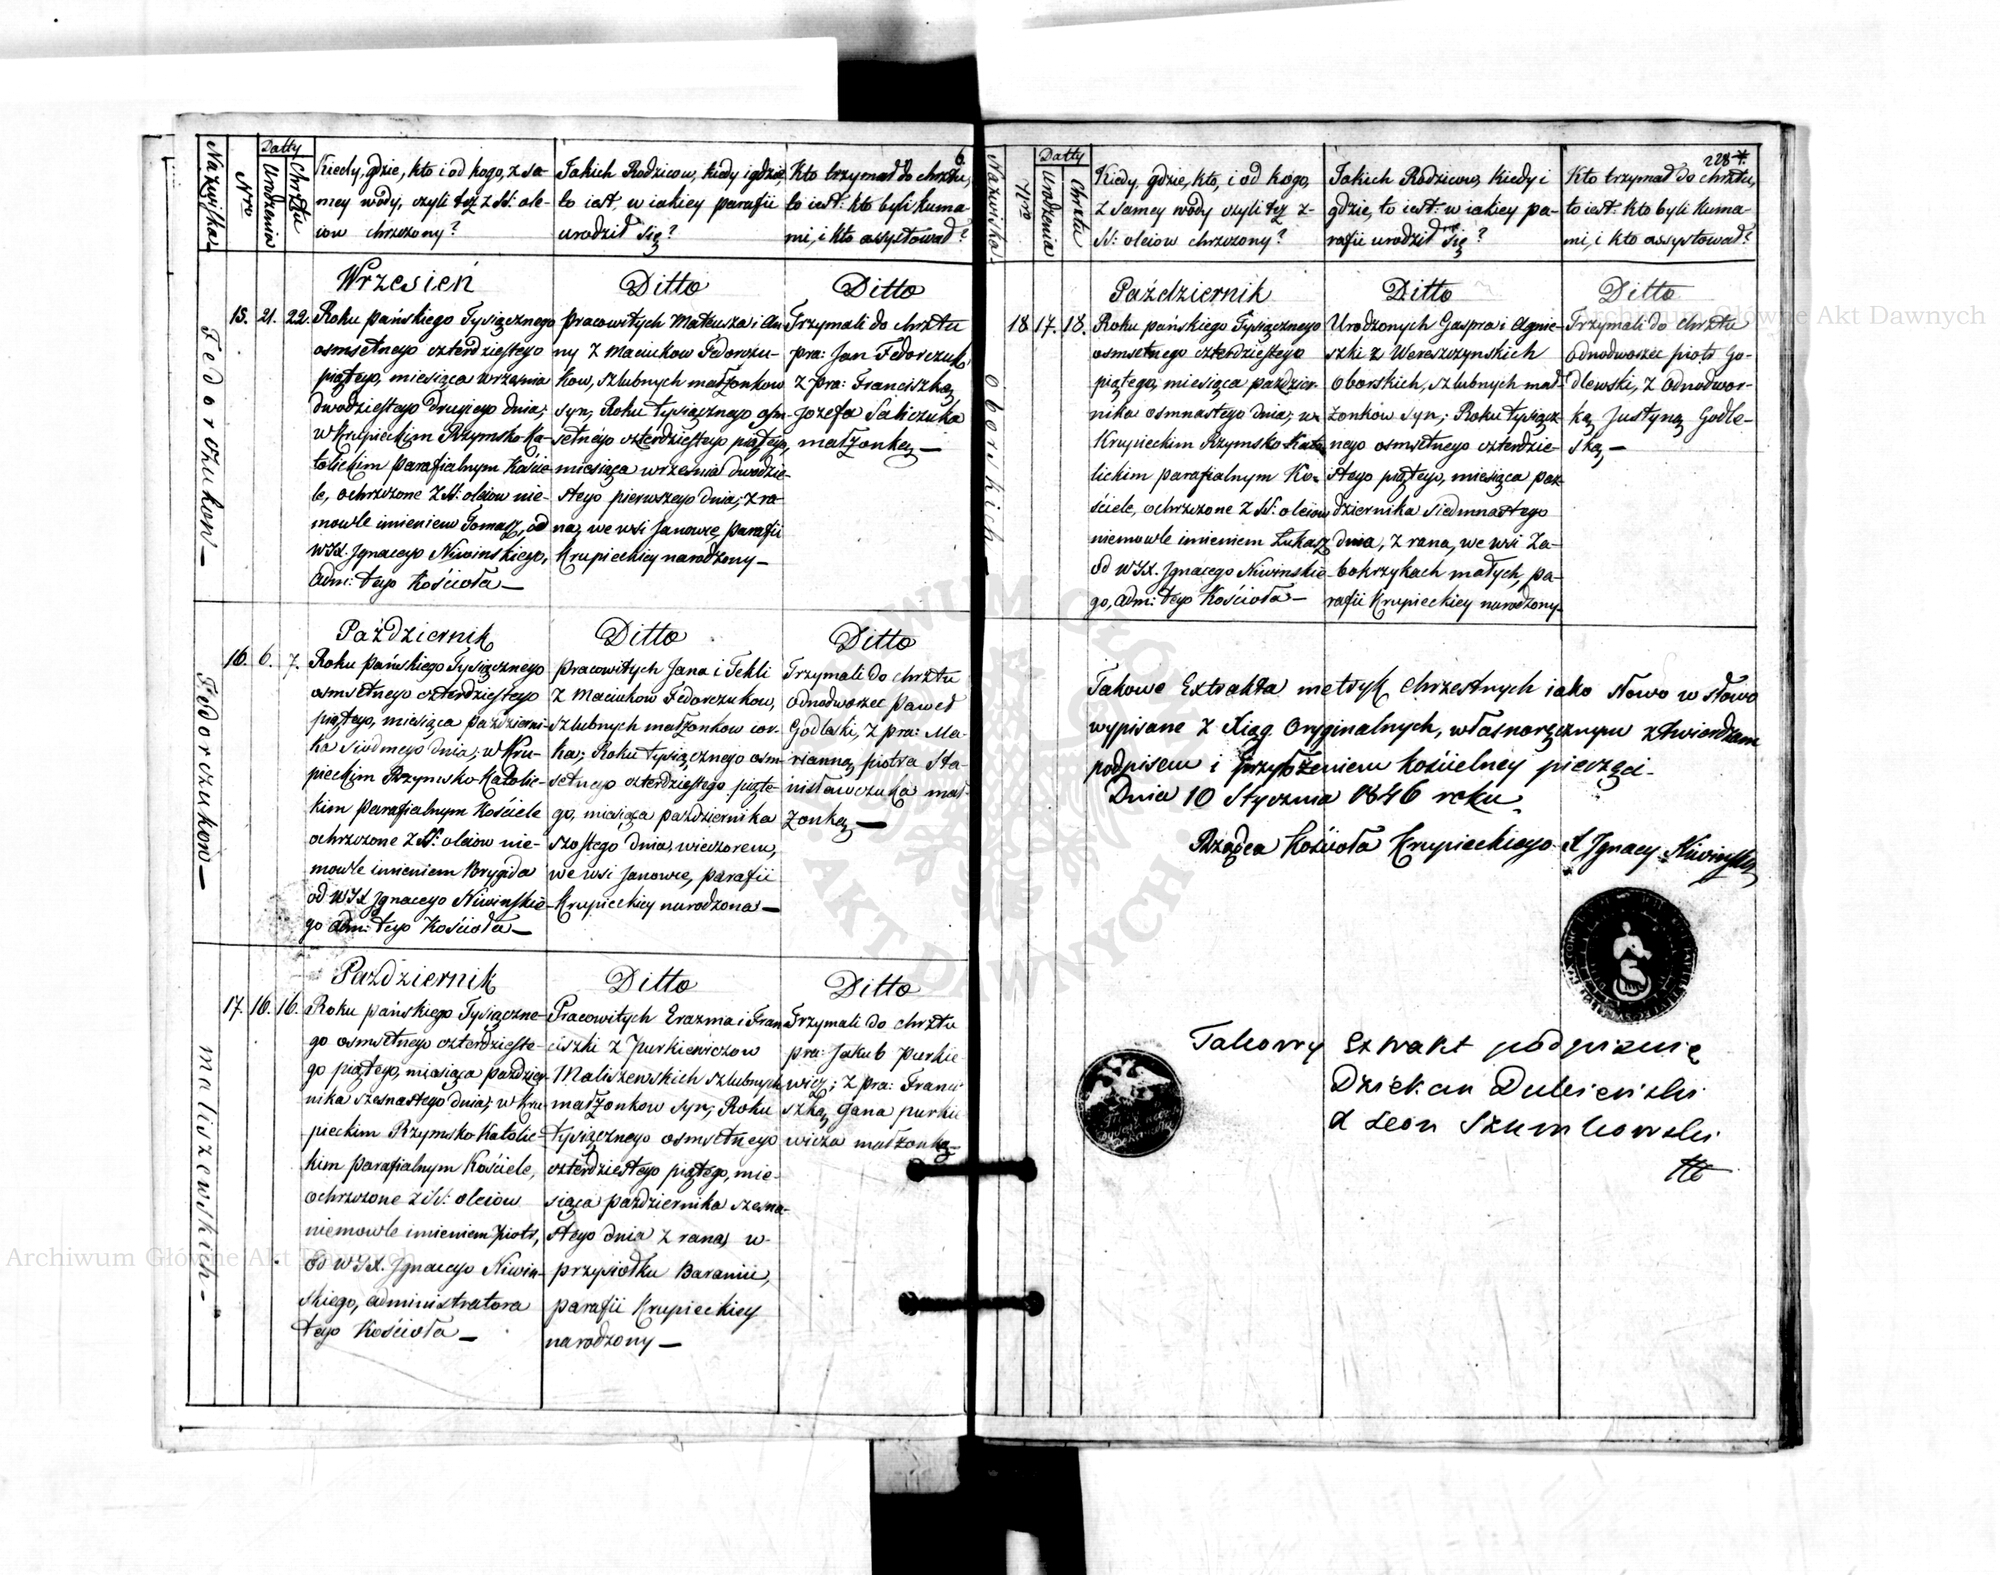 6.
Nazwiska
Nro
Datty
Urodzenia
Chrztu
Kiedy, gdzie, kto i od kogo, z sa-
mey wody, czyli też z SS: ole-
iow chrzczony?
Jakich Rodzicow, kiedy i gdzie,
to iest, w iakiey parafii
urodził się?
Kto trzymał do chrztu,
to iest: kto byli kuma-
mi, i kto assystował?
Fedorczukow—
15. 21. 22.
Wrzesień
Roku pańskiego Tysiącznego
osmsetnego czterdziestego
piątego, miesiąca wrzesnia
dwudziestego drugiego dnia;
w Krupieckim Rzymsko Ka-
tolickim parafialnym Koście-
le, ochrzczone z SS: oleiow nie-
mowle imieniem Tomasz, od
WJX. Ignacego Niwinskiego,
adm: tego Kościoła—
Ditto
pracowitych Mateusza i An-
ny z Maciukow Fedorczu-
kow, szlubnych małżonkow
syn, Roku tysiącznego osm-
setnego czterdziestego piątego,
miesiąca września dwudzie-
stego pierwszego dnia, z ra-
na, we wsi Janowce, parafii
Krupieckiey narodzony—
Ditto
Trzymali do chrztu
pra: Jan Fedorczuk,
z pra: Franciszką
Jozefa Sawczuka
małżonką—
Fedorczukow—
16. 6. 7.
Październik
Roku pańskiego Tysiącznego
osmsetnego czterdziestego
piątego, miesiąca październi-
ka siodmego dnia; w Kru-
pieckim Rzymsko Katolic-
kim parafialnym Kościele
ochrzczone z SS: oleiow nie-
mowle imieniem Brygida
od WJX Ignacego Niwinskie-
go adm: tego Kościoła—
Ditto
pracowitych Jana i Tekli
z Maciukow Fedorczukow,
szlubnych małżonkow cor-
ka; Roku tysiącznego osm-
setnego czterdziestego piąte-
go, miesiąca października
szostego dnia, wieczorem,
we wsi Janowce, parafii
Krupieckiey narodzona—
Ditto
Trzymali do chrztu
odnodworzec paweł
Godlaski, z pra: Ma-
rianną, piotra Sta-
nisławczuka mał-
żonką—
Maliszewskich—
17. 16. 16.
Pazdziernik
Roku pańskiego Tysiączne-
go osmsetnego czterdzieste-
go piątego, miesiąca paździer-
nika szesnastego dnia; w Kru-
pieckim Rzymsko Katolic-
kim parafialnym Kościele,
ochrzczone z SS: oleiow
niemowle imieniem piotr,
od WJX. Ignacego Niwin-
skiego, administratora
tego Kościoła—
Ditto
Pracowitych Erazma i Fran-
ciszki z Jurkiewiczow
Maliszewskich szlubnych
małżonkow syn, Roku
tysiącznego osmsetnego
czterdziestego piątego, mie-
siąca października szesna-
stego dnia z rana, w
przysiołku Baranii,
parafii Krupieckiey
narodzony—
Ditto
Trzymali do chrztu
pra: Jakub Jurkie-
wicz; z pra: Franci-
szką, Jana Jurkie-
wicza małżonką—
228
Nazwiska
Nro
Datty
Urodzenia
Chrztu
Kiedy, gdzie, kto, i od kogo,
z samey wody czyli też z
SS: oleiow chrzczony?
Jakich Rodzicow, kiedy i
gdzie, to iest: w iakiey pa-
rafii urodził się?
Kto trzymał do chrztu,
to iest: kto byli kuma-
mi, i kto assystował?
Oborskich—
18. 17. 18.
Październik
Roku pańskiego Tysiącznego
osmsetnego czterdziestego
piątego, miesiąca pazdzier-
nika osmnastego dnia; w
Krupieckim Rzymsko Kato-
lickim parafialnym Ko-
ściele, ochrzczone z SS: oleiow
niemowle imieniem Łukasz
od WJX. Ignacego Niwinskie-
go, adm: tego Kościoła—
Ditto
Urodzonych Gaspra i Agnie-
szki z Wereszczynskich
Oborskich, szlubnych mał-
żonków syn; Roku tysiącz-
nego osmsetnego czterdzie-
stego piątego, miesiąca paz-
dziernika siedmnastego
dnia, z rana, we wsi Za-
bokrzykach małych, pa-
rafii Krupieckiey narodzony.
Ditto
Trzymali do chrztu
odnodworzec piotr Go-
dlewski, z odnodwor-
ką Justyną Godle-
ską—
Takowe Extrakta metryk chrzestnych iako słowo w słowo
wypisane z Xiąg Oryginalnych, własnoręcznym ztwierdzam
podpisem i przyłożeniem kościelney pieczęci.
Dnia 10 Stycznia 1846 roku.
Rządca Kościoła Krupieckiego X Ignacy Niwinski
Takowy Extrakt podpisuię
Dziekan Dubieński
X Leon Szumkowski
Archiwum Główne Akt Dawnych
Archiwum Główne Akt Dawnych
ARCHIWUM GŁÓWNE AKT DAWNYCH